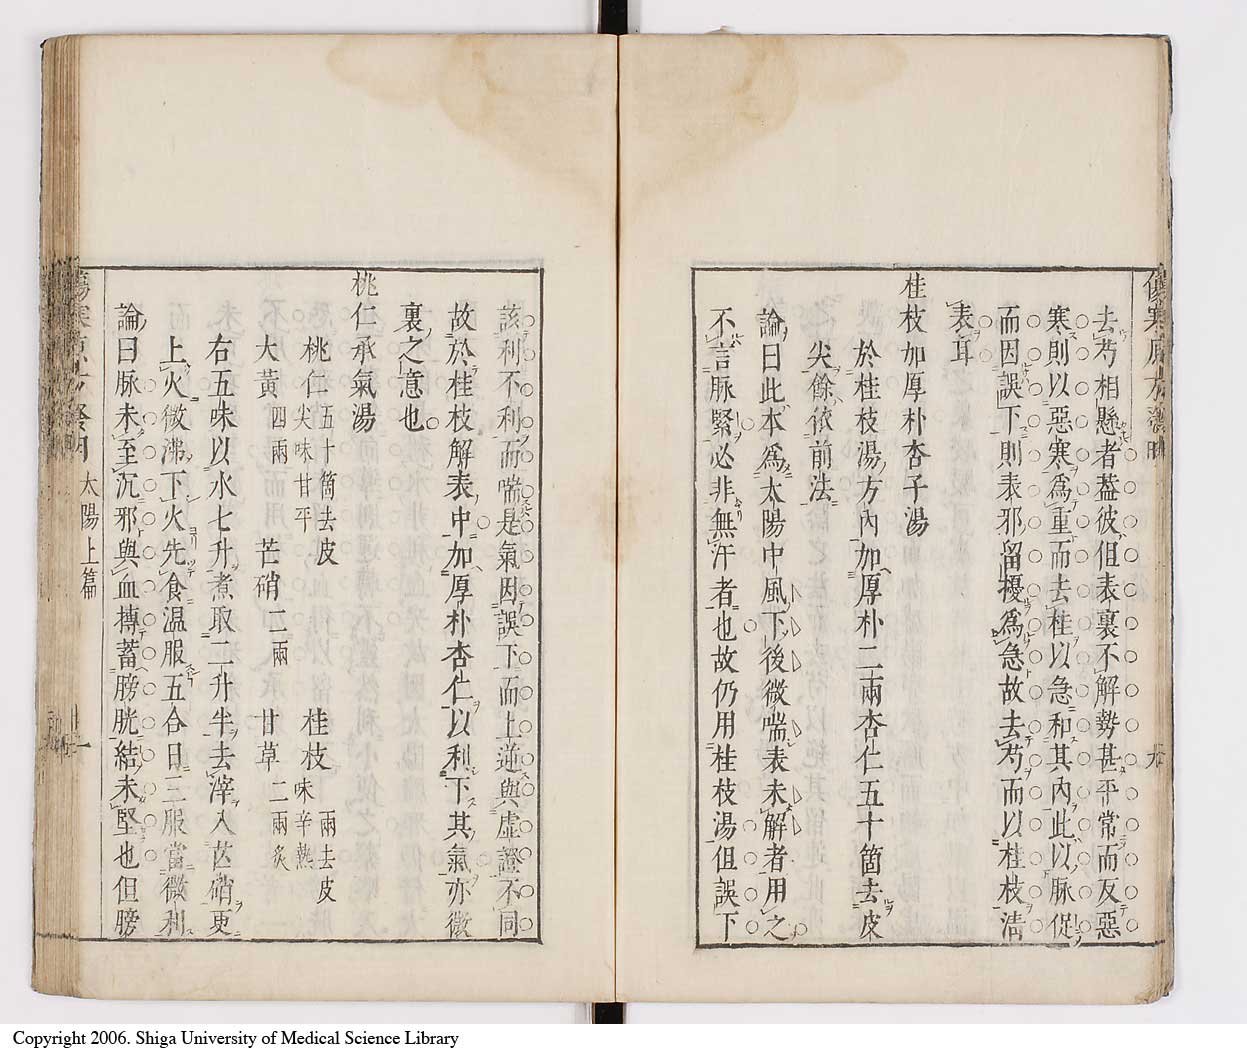 去芍相懸者蓋彼但表裏不解勢甚平常而反惡
寒則以惡寒爲重而去桂以急和其內此以脉促
而因誤下則表邪留擾爲急故去芍而以桂枝清
表耳
桂枝加厚朴杏子湯
於桂枝湯方內加厚朴二兩杏仁五十箇去皮
尖餘依前法
論曰此本爲太陽中風下後微喘表未解者用之
不言脈緊必非無汗者也故仍用桂枝湯但誤下
該利不利而喘是氣因誤下而上逆與虛證不同
故於桂枝解表中加厚朴杏仁以利下其氣亦微
裏之意也
桃仁承氣湯
桃仁五十箇去皮尖味甘平 桂枝二兩去皮味辛熱
大黃四兩 芒硝二兩 甘草二兩炙
右五味以水七升煮取二升半去滓入芒硝更
上火微沸下火先食温服五合日三服當微利
論曰脉未至沉邪與血摶蓄膀胱結未堅也但膀
太陽上篇
Copyright 2006. Shiga University of Medical Science Library